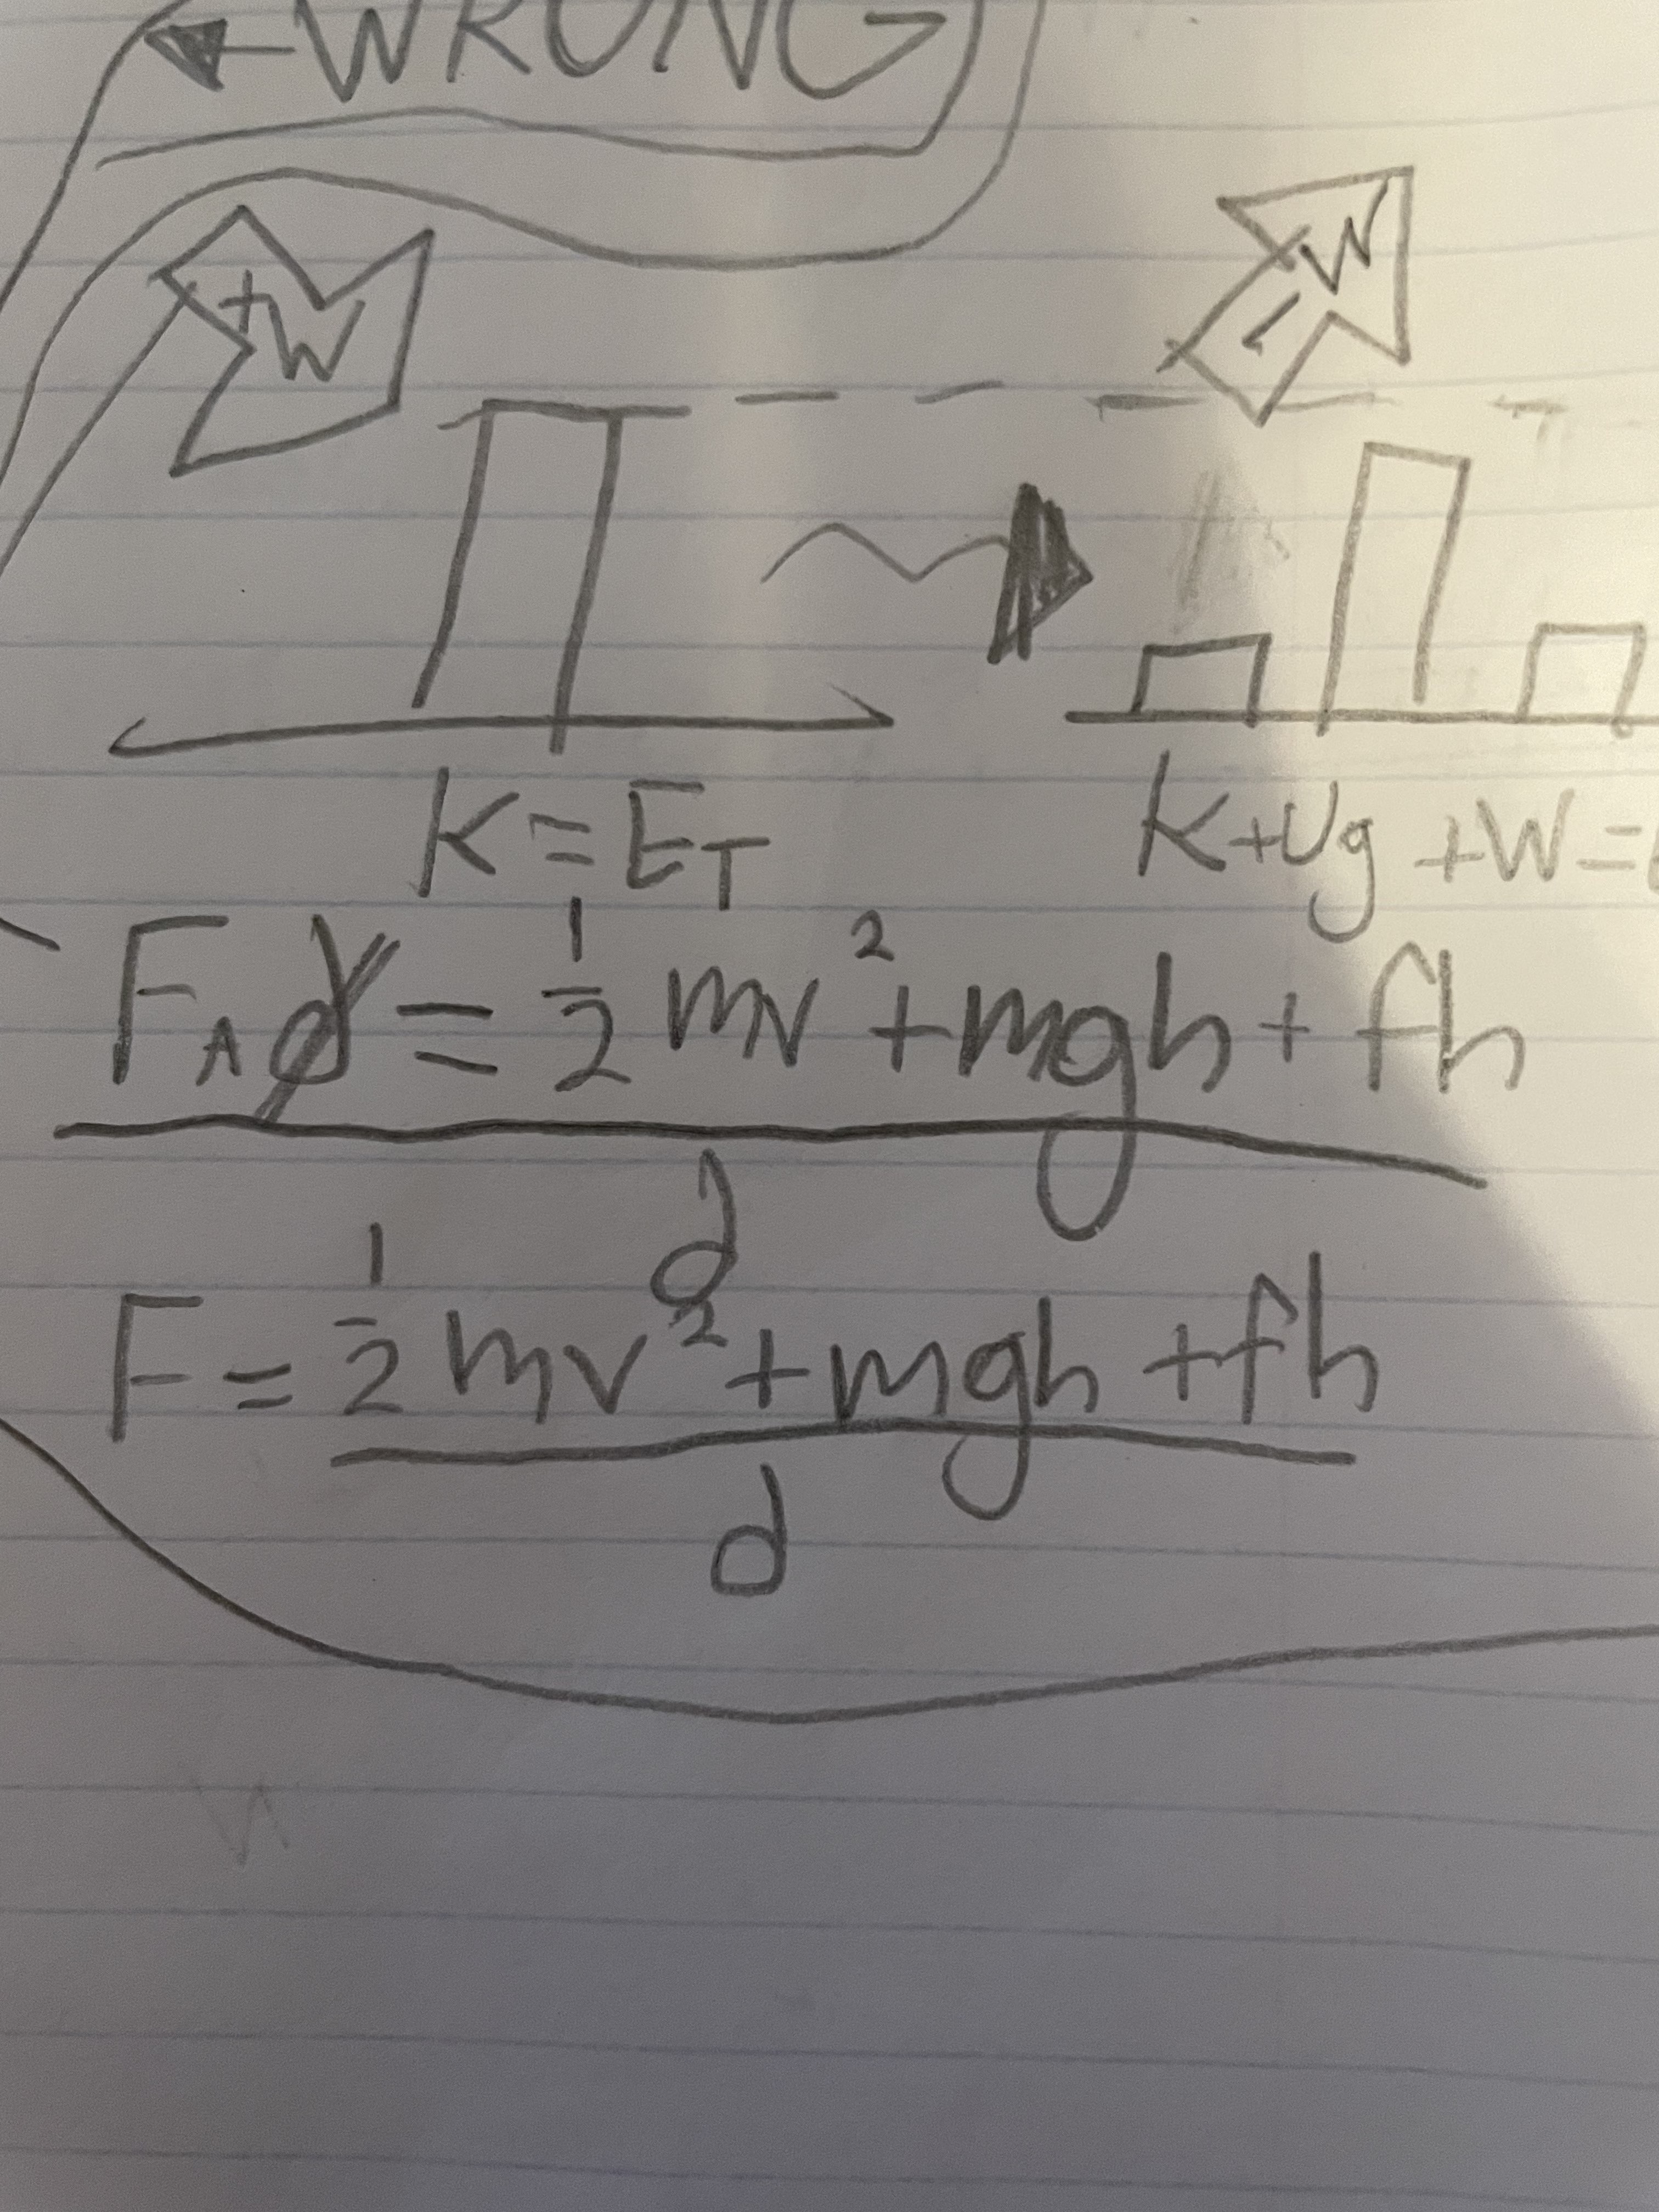 ←WRONG
+W
-W
K=E_T
K+Ug+W=
F_A d = 1/2 mv² + mgh + fh
d
F = 1/2 mv² + mgh + fh
d